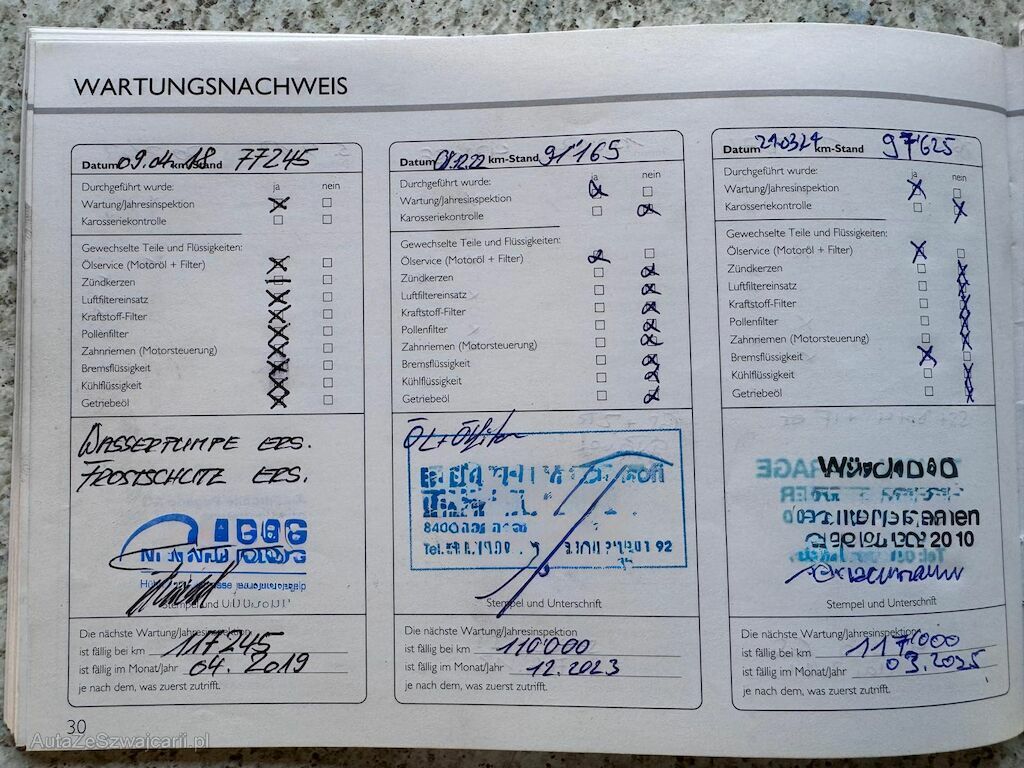 WARTUNGSNACHWEIS
Datum 09.04.18 km-Stand 77245
Durchgeführt wurde: ja nein
Wartung/Jahresinspektion
Karosseriekontrolle
Gewechselte Teile und Flüssigkeiten:
Ölservice (Motoröl + Filter)
Zündkerzen
Luftfiltereinsatz
Kraftstoff-Filter
Pollenfilter
Zahnriemen (Motorsteuerung)
Bremsflüssigkeit
Kühlflüssigkeit
Getriebeöl
WASSERPUMPE ERS.
FROSTSCHUTZ ERS.
Stempel und
Die nächste Wartung/Jahresinspektion
ist fällig bei km 117245
ist fällig im Monat/Jahr 04.2019
je nach dem, was zuerst zutrifft.
Datum 01.12.22 km-Stand 91'165
Durchgeführt wurde: ja nein
Wartung/Jahresinspektion
Karosseriekontrolle
Gewechselte Teile und Flüssigkeiten:
Ölservice (Motoröl + Filter)
Zündkerzen
Luftfiltereinsatz
Kraftstoff-Filter
Pollenfilter
Zahnriemen (Motorsteuerung)
Bremsflüssigkeit
Kühlflüssigkeit
Getriebeöl
Öl + Ölfilter
8400
Tel. 92
Stempel und Unterschrift
Die nächste Wartung/Jahresinspektion
ist fällig bei km 110'000
ist fällig im Monat/Jahr 12.2023
je nach dem, was zuerst zutrifft.
Datum 21.03.24 km-Stand 97'625
Durchgeführt wurde: ja nein
Wartung/Jahresinspektion
Karosseriekontrolle
Gewechselte Teile und Flüssigkeiten:
Ölservice (Motoröl + Filter)
Zündkerzen
Luftfiltereinsatz
Kraftstoff-Filter
Pollenfilter
Zahnriemen (Motorsteuerung)
Bremsflüssigkeit
Kühlflüssigkeit
Getriebeöl
20 10
Stempel und Unterschrift
Die nächste Wartung/Jahresinspektion
ist fällig bei km 117'000
ist fällig im Monat/Jahr 03.2025
je nach dem, was zuerst zutrifft.
30
AutaZeSzwajcarii.pl